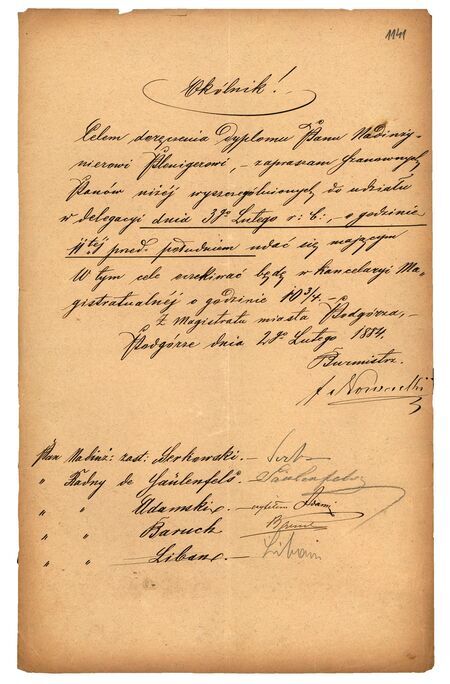 1141
Okólnik!
Celem doręczenia dyplomu Panu Nadinży-
nierowi Plenigerowi, – zapraszam Szanownych
Panów niżéj wyszczególnionych do udziału
w delegacyi dnia 3go Lutego r: b:, – o godzinie
11téj przed południem udać się mającym
W tym celu oczekiwać będę w kancelaryi Ma-
gistratualnéj o godzinie 10 3/4. –
Z Magistratu miasta Podgórza, –
Podgórze dnia 2go Lutego 1884.
Burmistrz.
Nowacki
Pan Nadinż: zast: Serkowski. –
" Radny de Gäulenfels. – Gäulenfels
" " Adamski. – czytałem
" " Baruch –
" " Liban. – Liban